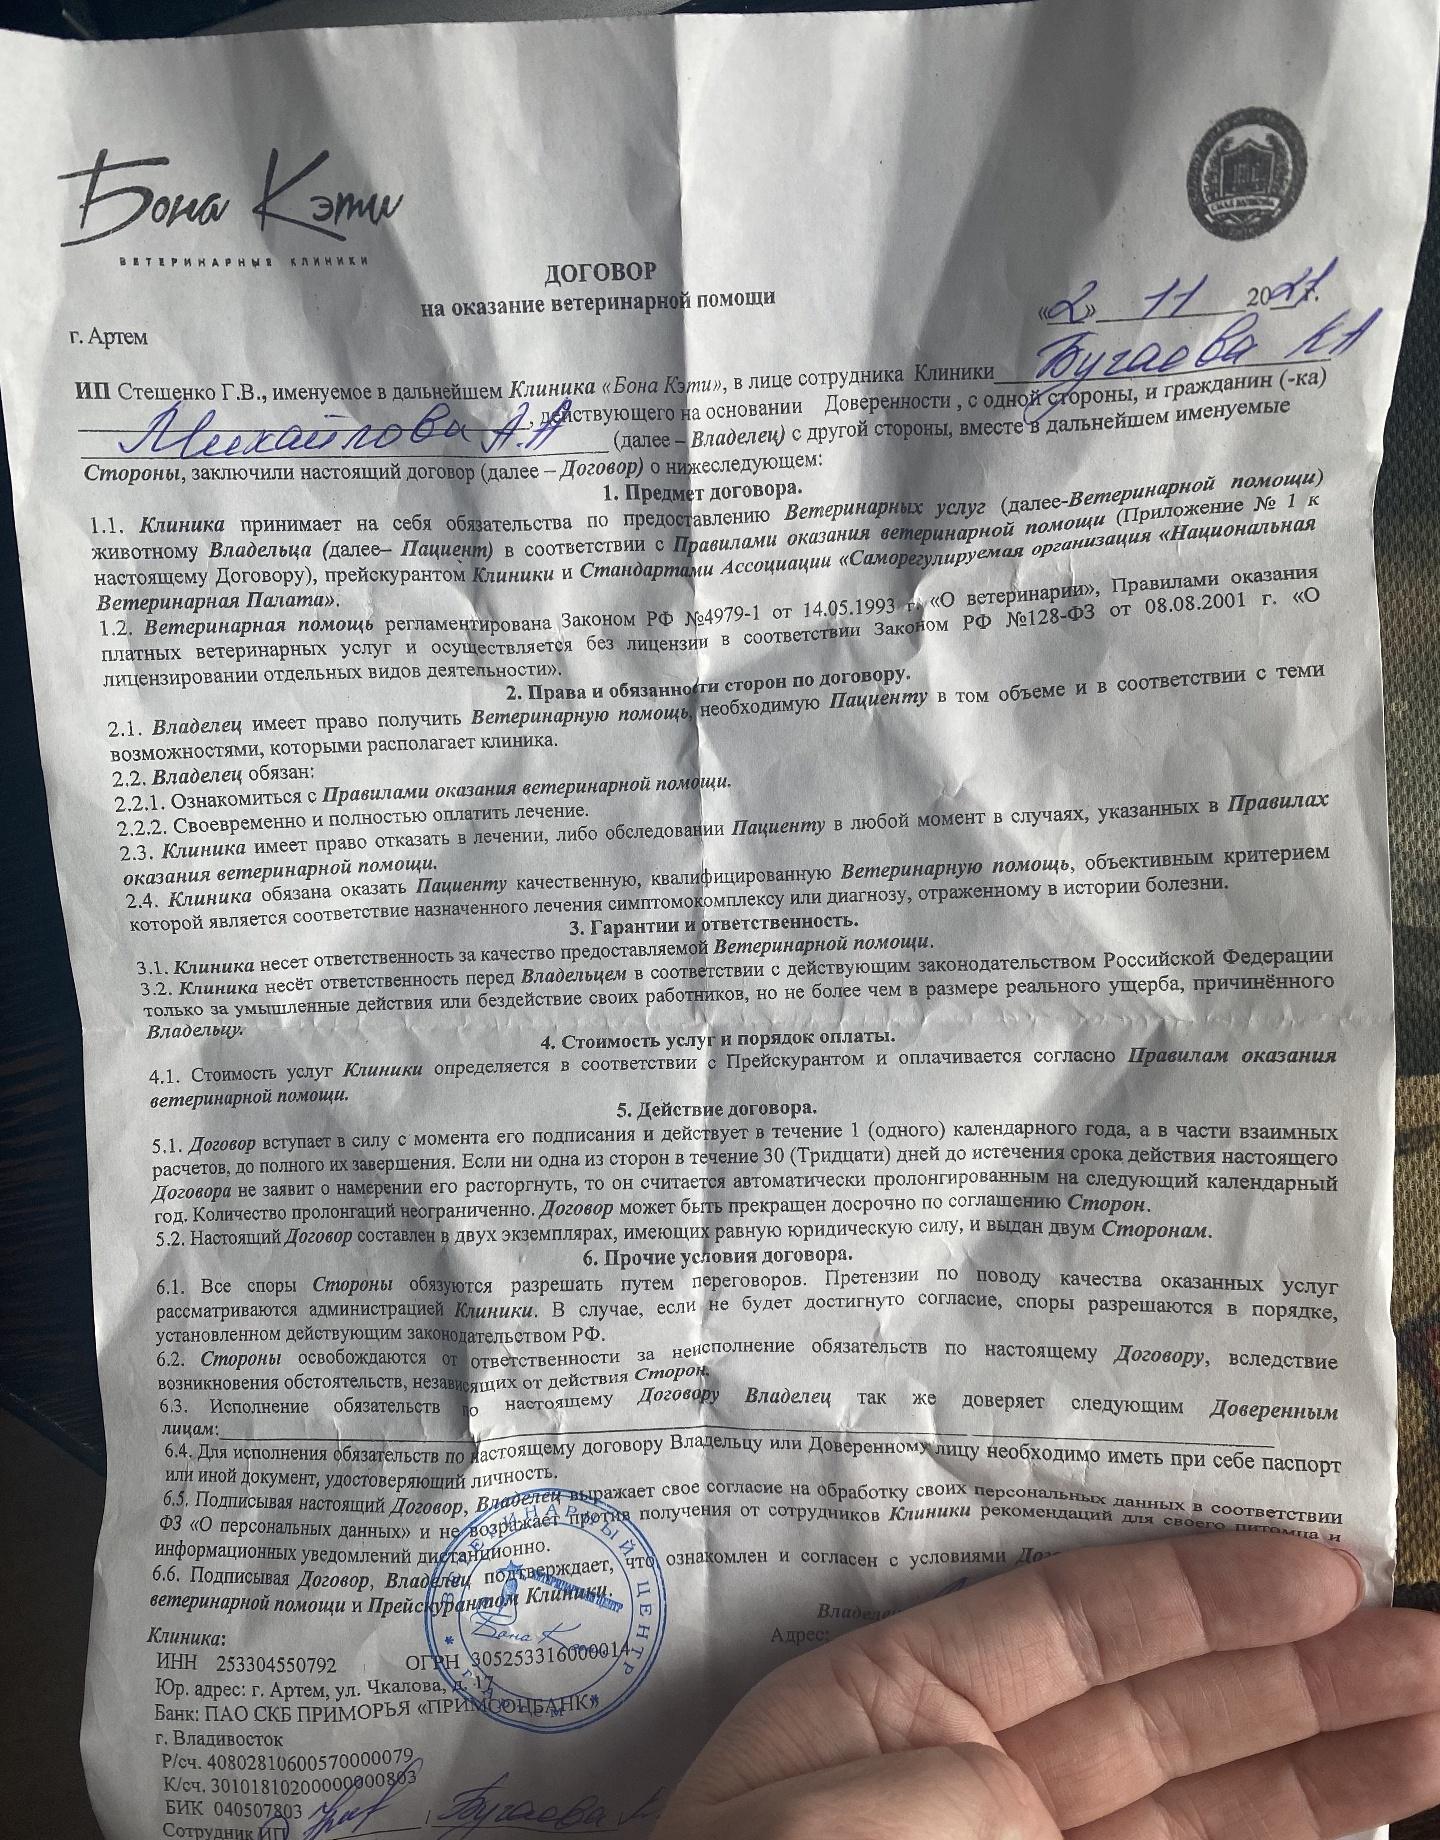 Бона Кэти
ВЕТЕРИНАРНЫЕ КЛИНИКИ
ДОГОВОР
на оказание ветеринарной помощи
г. Артем
«2» 11 2021 г.
ИП Стешенко Г.В., именуемое в дальнейшем Клиника «Бона Кэти», в лице сотрудника Клиники Бугаева КА
, действующего на основании Доверенности , с одной стороны, и гражданин (-ка)
Михайлова А.А (далее – Владелец) с другой стороны, вместе в дальнейшем именуемые
Стороны, заключили настоящий договор (далее – Договор) о нижеследующем:
1. Предмет договора.
1.1. Клиника принимает на себя обязательства по предоставлению Ветеринарных услуг (далее-Ветеринарной помощи)
животному Владельца (далее– Пациент) в соответствии с Правилами оказания ветеринарной помощи (Приложение № 1 к
настоящему Договору), прейскурантом Клиники и Стандартами Ассоциации «Саморегулируемая организация «Национальная
Ветеринарная Палата».
1.2. Ветеринарная помощь регламентирована Законом РФ №4979-1 от 14.05.1993 г. «О ветеринарии», Правилами оказания
платных ветеринарных услуг и осуществляется без лицензии в соответствии Законом РФ №128-ФЗ от 08.08.2001 г. «О
лицензировании отдельных видов деятельности».
2. Права и обязанности сторон по договору.
2.1. Владелец имеет право получить Ветеринарную помощь, необходимую Пациенту в том объеме и в соответствии с теми
возможностями, которыми располагает клиника.
2.2. Владелец обязан:
2.2.1. Ознакомиться с Правилами оказания ветеринарной помощи.
2.2.2. Своевременно и полностью оплатить лечение.
2.3. Клиника имеет право отказать в лечении, либо обследовании Пациенту в любой момент в случаях, указанных в Правилах
оказания ветеринарной помощи.
2.4. Клиника обязана оказать Пациенту качественную, квалифицированную Ветеринарную помощь, объективным критерием
которой является соответствие назначенного лечения симптомокомплексу или диагнозу, отраженному в истории болезни.
3. Гарантии и ответственность.
3.1. Клиника несет ответственность за качество предоставляемой Ветеринарной помощи.
3.2. Клиника несёт ответственность перед Владельцем в соответствии с действующим законодательством Российской Федерации
только за умышленные действия или бездействие своих работников, но не более чем в размере реального ущерба, причинённого
Владельцу.
4. Стоимость услуг и порядок оплаты.
4.1. Стоимость услуг Клиники определяется в соответствии с Прейскурантом и оплачивается согласно Правилам оказания
ветеринарной помощи.
5. Действие договора.
5.1. Договор вступает в силу с момента его подписания и действует в течение 1 (одного) календарного года, а в части взаимных
расчетов, до полного их завершения. Если ни одна из сторон в течение 30 (Тридцати) дней до истечения срока действия настоящего
Договора не заявит о намерении его расторгнуть, то он считается автоматически пролонгированным на следующий календарный
год. Количество пролонгаций неограниченно. Договор может быть прекращен досрочно по соглашению Сторон.
5.2. Настоящий Договор составлен в двух экземплярах, имеющих равную юридическую силу, и выдан двум Сторонам.
6. Прочие условия договора.
6.1. Все споры Стороны обязуются разрешать путем переговоров. Претензии по поводу качества оказанных услуг
рассматриваются администрацией Клиники. В случае, если не будет достигнуто согласие, споры разрешаются в порядке,
установленном действующим законодательством РФ.
6.2. Стороны освобождаются от ответственности за неисполнение обязательств по настоящему Договору, вследствие
возникновения обстоятельств, независящих от действия Сторон.
6.3. Исполнение обязательств по настоящему Договору Владелец так же доверяет следующим Доверенным
лицам:
6.4. Для исполнения обязательств по настоящему договору Владельцу или Доверенному лицу необходимо иметь при себе паспорт
или иной документ, удостоверяющий личность.
6.5. Подписывая настоящий Договор, Владелец выражает свое согласие на обработку своих персональных данных в соответствии
ФЗ «О персональных данных» и не возражает против получения от сотрудников Клиники рекомендаций для своего питомца и
информационных уведомлений дистанционно.
6.6. Подписывая Договор, Владелец подтверждает, что ознакомлен и согласен с условиями
ветеринарной помощи и Прейскурантом Клиники.
ВЕТЕРИНАРНЫЙ ЦЕНТР
Бона
Клиника:
Адрес:
ИНН 253304550792 ОГРН 305253316000014
Юр. адрес: г. Артем, ул. Чкалова, д. 17
Банк: ПАО СКБ ПРИМОРЬЯ «ПРИМСОЦБАНК»
г. Владивосток
Р/сч. 40802810600570000079
К/сч. 30101810200000000803
БИК 040507803
Сотрудник ИП / Бугаева